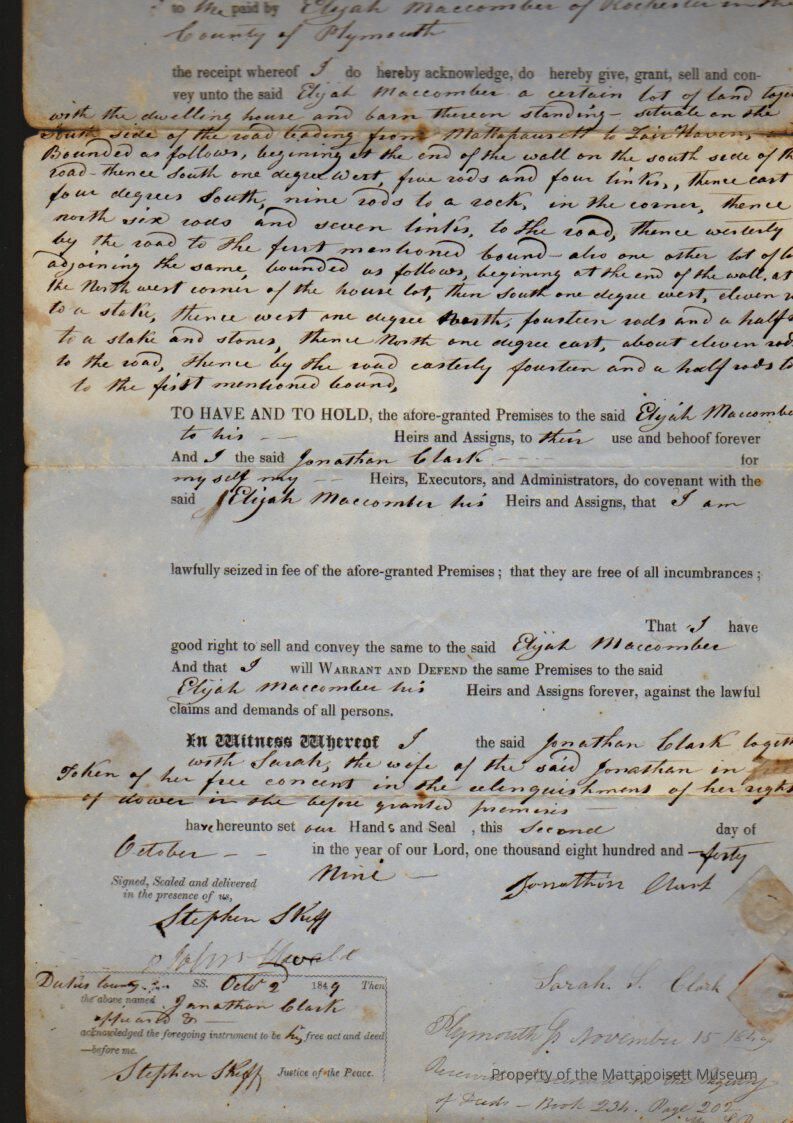 to me paid by Elijah Maccomber of Rochester in the
County of Plymouth
the receipt whereof I do hereby acknowledge, do hereby give, grant, sell and con-
vey unto the said Elijah Maccomber a certain lot of land toge
with the dwelling house and barn thereon standing - situate on the
South side of the road leading from Mattapausett to Fair Haven,
Bounded as follows, begining at the end of the wall on the south side of th
road - thence South one degree west, five rods and four links, thence east
four degrees South, nine rods to a rock, in the corner, thence
north six rods and seven links, to the road, thence westerly
by the road to the first mentioned bound - also one other lot of la
adjoining the same, bounded as follows, begining at the end of the wall, at
the North west corner of the house lot, then South one degree west, eleven r
to a stake, thence west one degree North, fourteen rods and a half
to a stake and stones, thence North one degree east, about eleven rod
to the road, thence by the road easterly fourteen and a half rods to
to the first mentioned bound,
TO HAVE AND TO HOLD, the afore-granted Premises to the said Elijah Maccombe
to his -- Heirs and Assigns, to their use and behoof forever
And I the said Jonathan Clark ---- for
myself my -- Heirs, Executors, and Administrators, do covenant with the
said Elijah Maccomber his Heirs and Assigns, that I am
lawfully seized in fee of the afore-granted Premises ; that they are free of all incumbrances ;
That I have
good right to sell and convey the same to the said Elijah Maccomber
And that I will WARRANT AND DEFEND the same Premises to the said
Elijah Maccomber his Heirs and Assigns forever, against the lawful
claims and demands of all persons.
In Witness Whereof I the said Jonathan Clark togeth
with Sarah, the wife of the said Jonathan in
Token of her free concent in the relinquishment of her right
of dower in the before granted premises
have hereunto set our Hands and Seal , this Second day of
October -- in the year of our Lord, one thousand eight hundred and forty
Nine - Jonathan Clark
Signed, Sealed and delivered
in the presence of us,
Stephen Skiff
Sarah S. Clark
Dukes County SS. Octr 2 1849 Then
the above named Jonathan Clark
appeared &
acknowledged the foregoing instrument to be his free act and deed
—before me.
Stephen Skiff Justice of the Peace.
Plymouth Ss November 15 1849
Received
of Deeds - Book 234. Page 202
Property of the Mattapoisett Museum